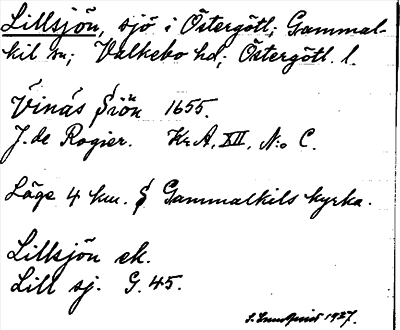 Lillsjön, sjö i Östergötl; Gammal-
kil sn; Valkebo hd; Östergötl. l.
Vinäs Siön 1655.
J. de Rogier. Kr A, XII, N:o C.
Läge 4 km. S Gammalkils kyrka.
Lillsjön ek.
Lill sj. G. 45.
1927.